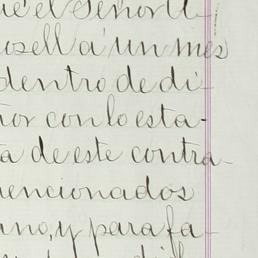 el Señor
osell á un mes
dentro de di-
ñor con lo esta-
a de este contra-
mencionados
no, y para fa-